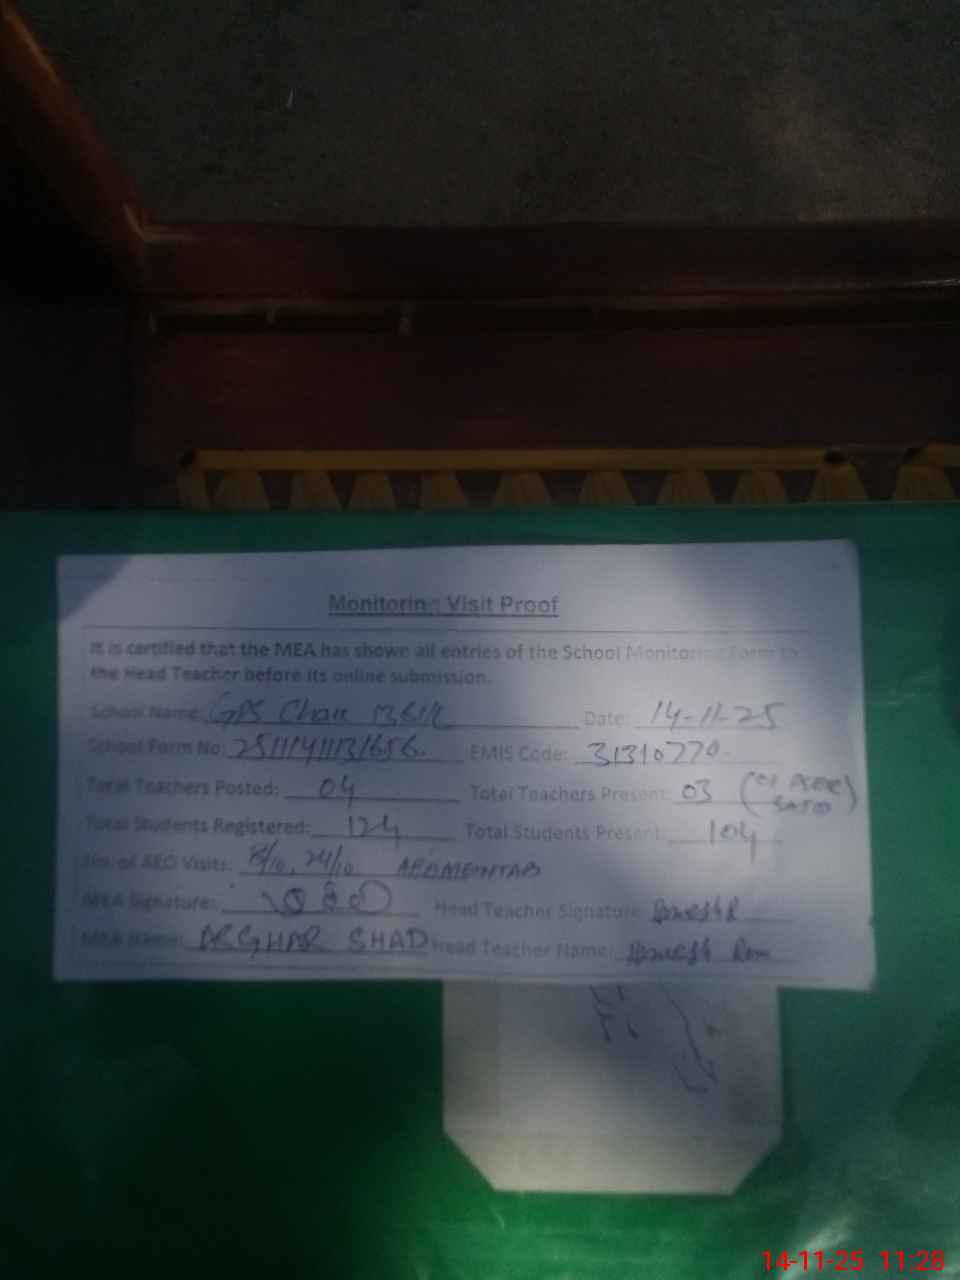 Monitoring Visit Proof
It is certified that the MEA has shown all entries of the School Monitoring Form to
the Head Teacher before its online submission.
School Name: GPS Chak 136/1L Date: 14-11-25
School Form No: 2511141131656. EMIS Code: 31310770.
Total Teachers Posted: 04 Total Teachers Present: 03 (01
Total Students Registered: 124 Total Students Present: 104
No. of AEO Visits: 24/10
MEA Signature: Head Teacher Signature:
MEA Name: ASGHAR SHAD Head Teacher Name:
14-11-25 11:28